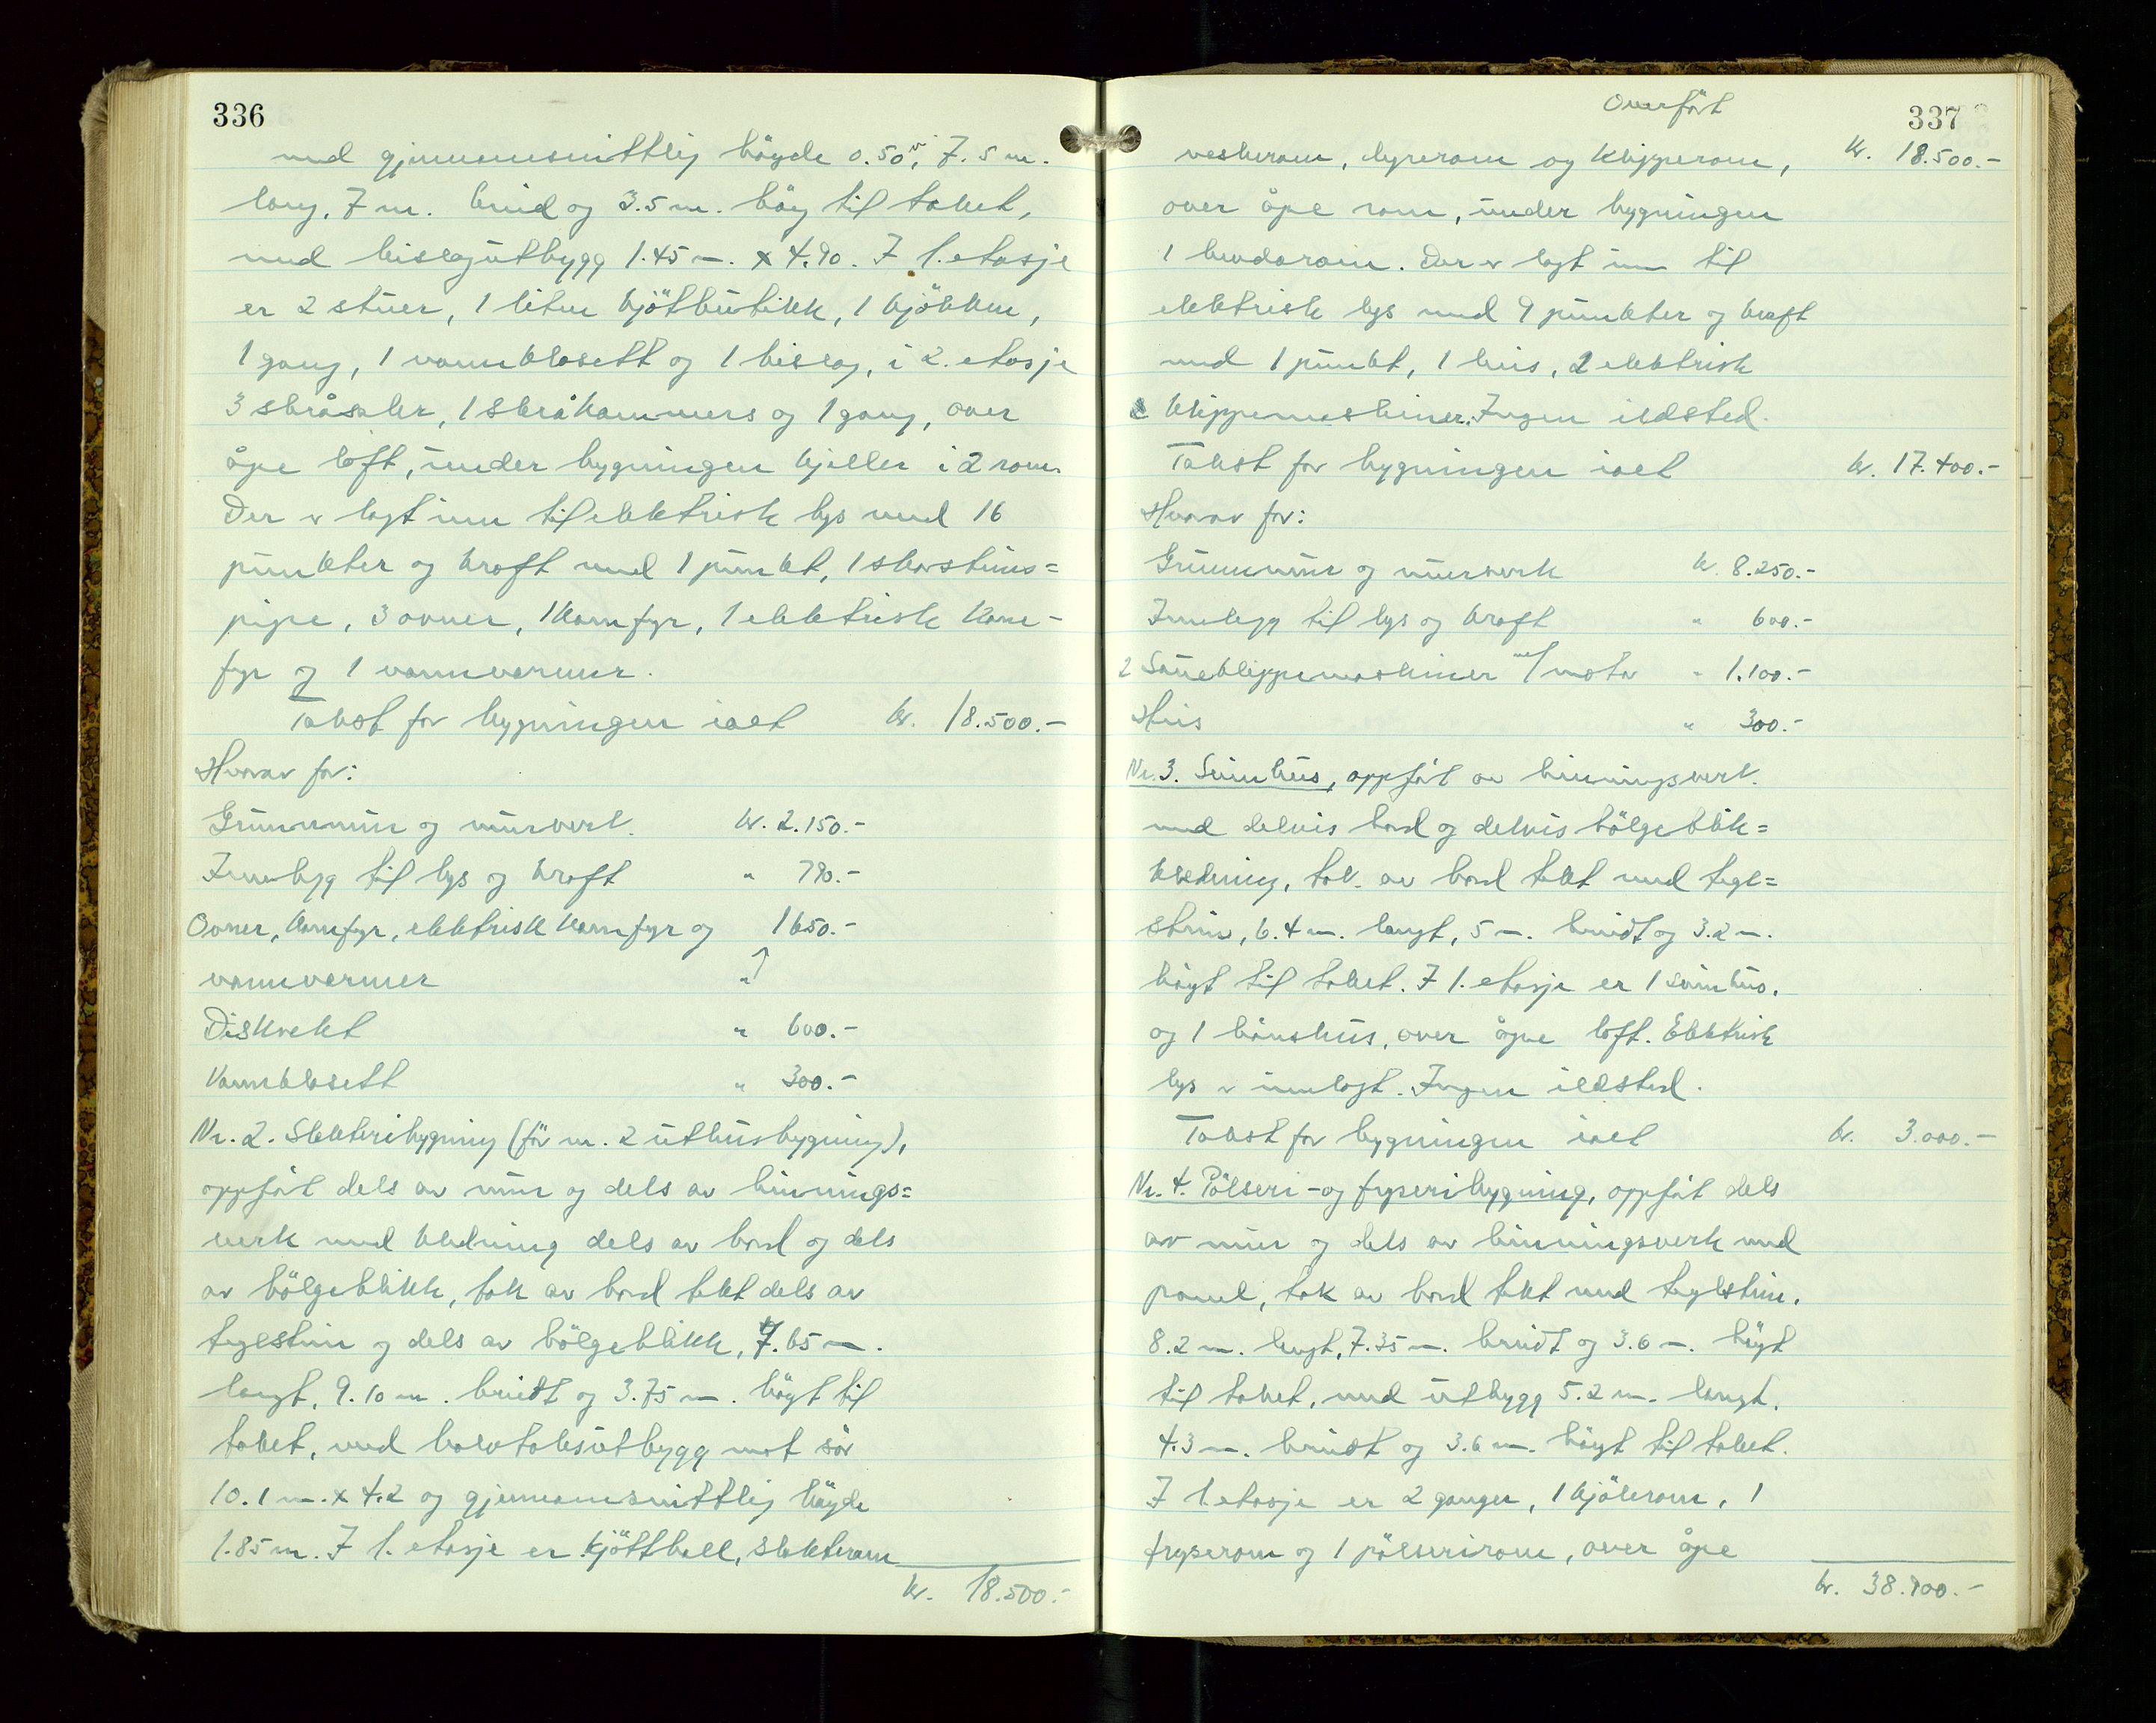 336
med gjennomsnittlig höyde 0.50 m, 7.5 m.
lang, 7 m. breid og 3.5 m. höy til taket,
med bislagutbygg 1.45 m. x 4.90. I 1. etasje
er 2 stuer, 1 liten kjötbutikk, 1 kjökken,
1 gang, 1 vannklosett og 1 bislag, i 2. etasje
3 skråsaler, 1 skråkammers og 1 gang, over
åpe loft, under bygningen kjeller i 2 rom.
Der er lagt inn til elektrisk lys med 16
punkter og kraft med 1 punkt, 1 skorsteins=
pipe, 3 ovner, 1 komfyr, 1 elektrisk kom-
fyr og 1 vannvarmer.
Takst for bygningen ialt kr. 18.500.-
Hvorav for:
Grunnmur og murverk. kr. 2.150.-
Innlegg til lys og kraft " 790.-
Ovner, komfyr, elektrisk komfyr og 1650.-
vannvarmer "
Diskvekt " 600.-
Vannklosett " 300.-
Nr. 2. Slakteribygning (för nr. 2 uthusbygning),
oppfört dels av mur og dels av binnings=
verk med kledning dels av bord og dels
av bölgeblikk, tak av bord tekt dels av
teglstein og dels av bölgeblikk, 7.65 m.
langt, 9.10 m. breidt og 3.75 m. högt til
taket, med halvtaksutbygg mot sör
10.1 m. x 4.2 og gjennomsnittlig höyde
1.85 m. I 1. etasje er kjötthall, slakterom
kr. 18.500.-
Overfört
337
vesterom, dyrerom og klipperom, kr. 18.500.-
over åpe rom, under bygningen
1 bodarom. Der er lagt inn til
elektrisk lys med 9 punkter og kraft
med 1 punkt, 1 heis, 2 elektrisk
klippemaskiner. Ingen ildsted.
Takst for bygningen ialt kr. 17.400.-
Hvorav for:
Grunnmur og murverk kr. 8.250.-
Innlegg til lys og kraft " 600.-
2 Saueklippemaskiner m/motor " 1.100.-
Heis " 300.-
Nr. 3. Svinhus, oppfört av binningsverk.
med delvis bord og delvis bölgeblikk=
kledning, tak av bord tekt med tegl=
stein, 6.4 m. langt, 5 m. breidt og 3.2 m.
högt til taket. I 1. etasje er 1 svinhus.
og 1 hönshus, over åpe loft. Elektrisk
lys er innlagt. Ingen ildsted.
Takst for bygningen ialt kr. 3.000.-
Nr. 4. Pölseri- og fryseribygning, oppfört dels
av mur og dels av binningsverk med
panel, tak av bord tekt med teglstein.
8.2 m. langt, 7.35 m. breidt og 3.6 m. högt
til taket, med utbygg 5.2 m. langt,
4.3 m. breidt og 3.6 m. högt til taket.
I 1. etasje er 2 ganger, 1 kjölerom, 1
fryserom og 1 pölserirom, over åpe
kr. 38.900.-